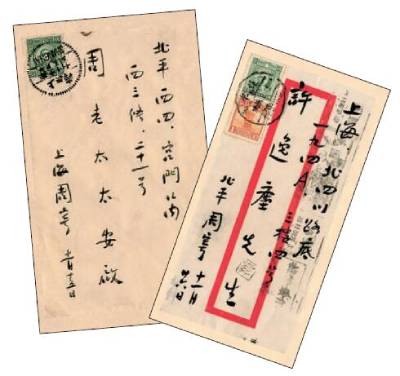 北平,西四,宫門口内
西三條,二十一号
周老太太安啟
上海周寄
上海,北四川路底
一九四A三楼四号
許逸塵先生
北平周寄十一月